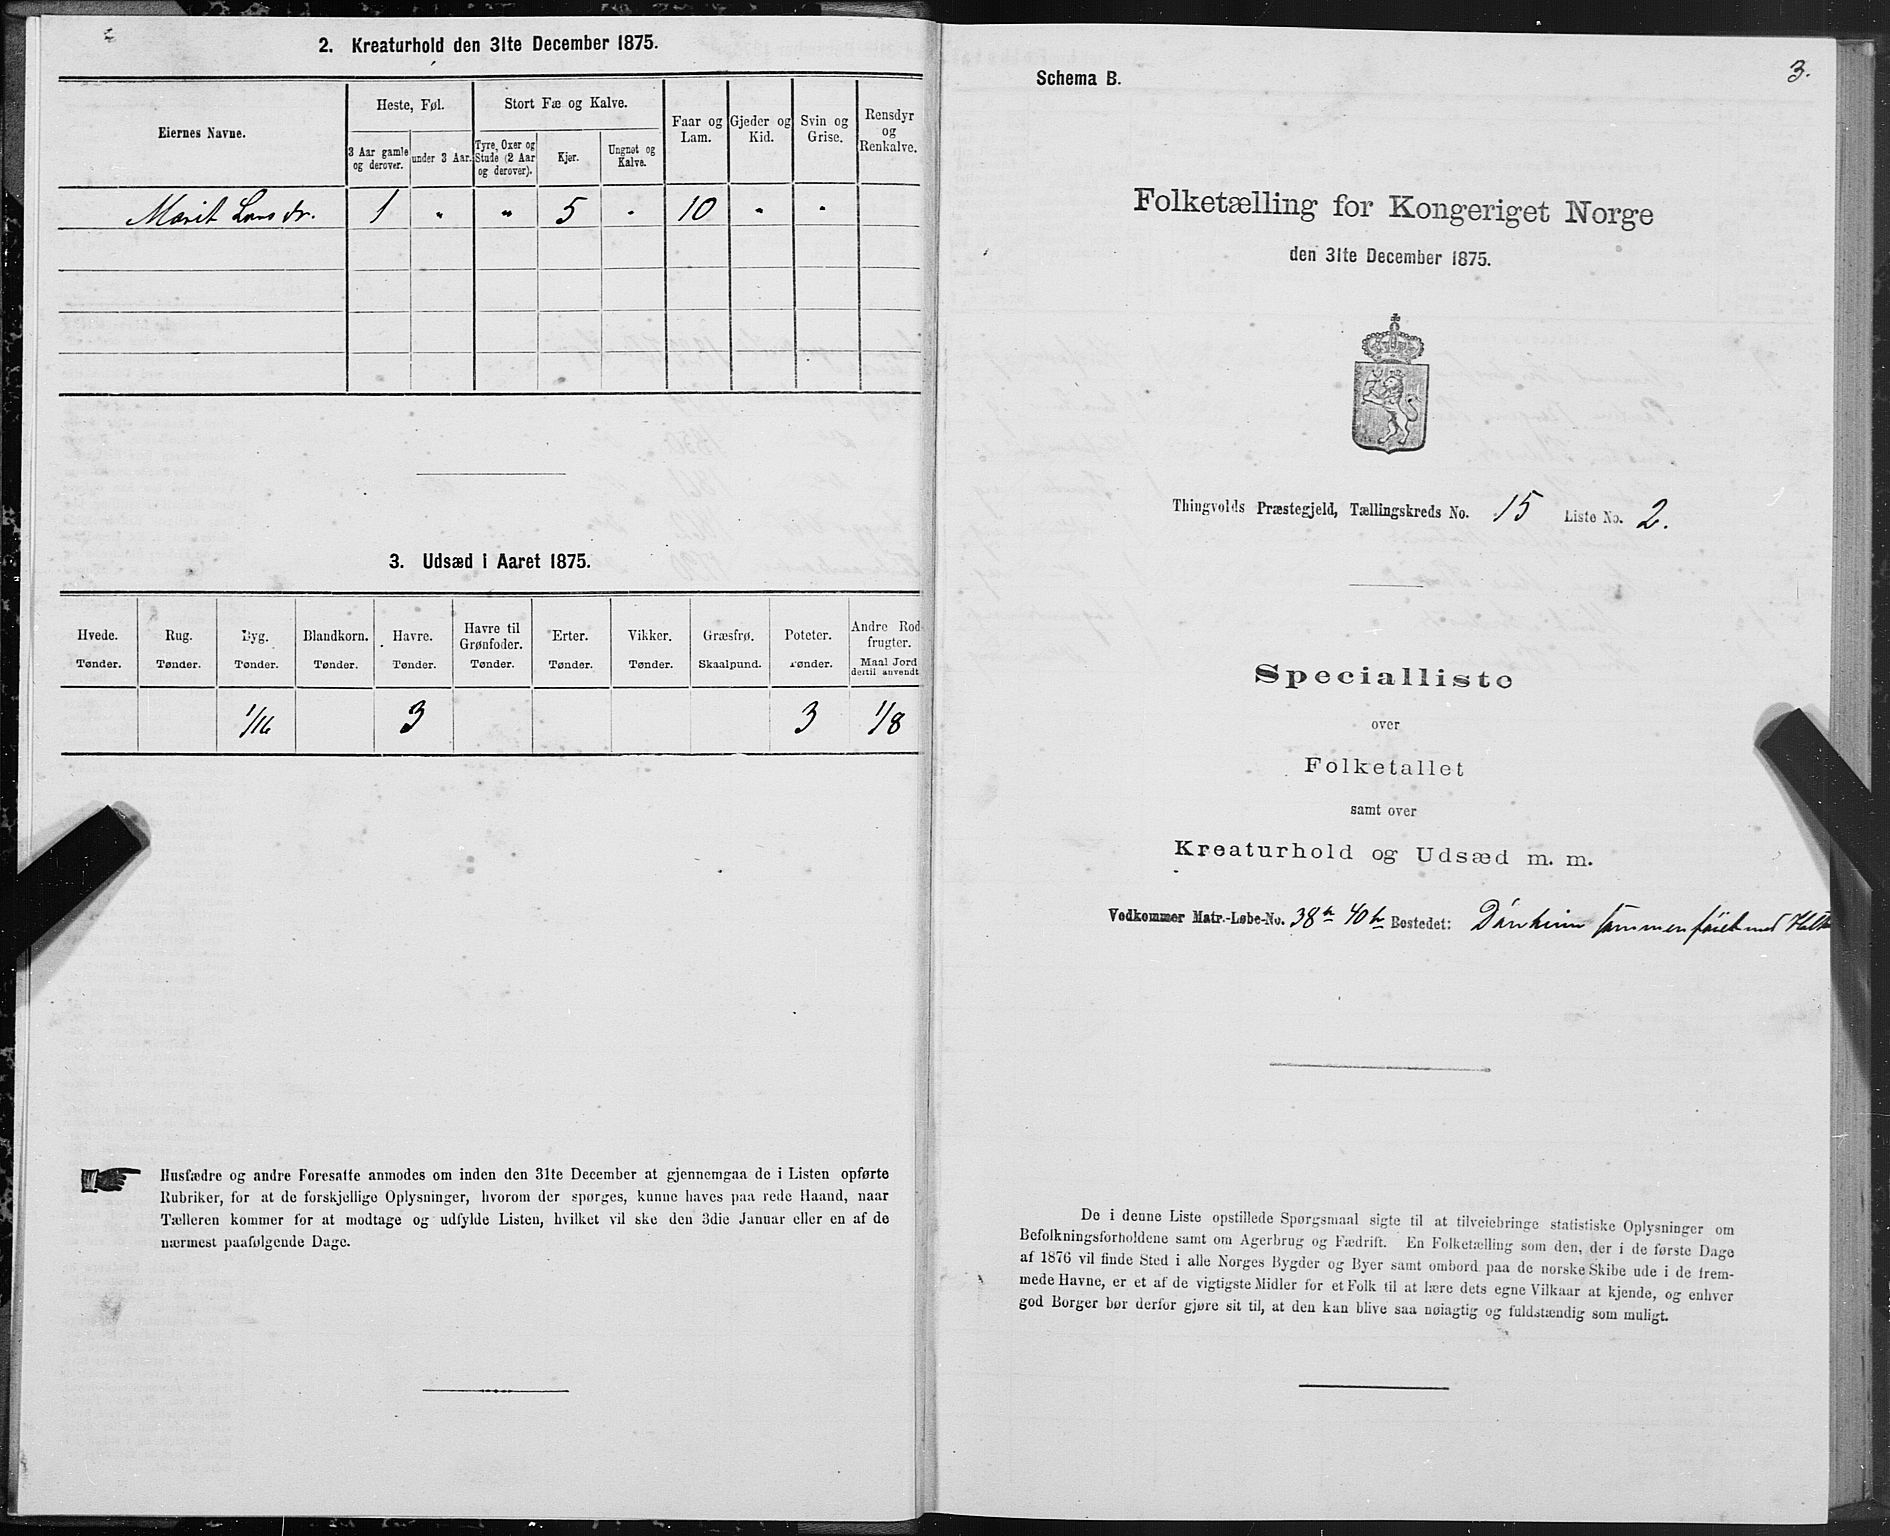 2. Kreaturhold den 31te December 1875.
Eiernes Navne.
Heste, Føl.
Stort Fæ og Kalve.
Faar og Lam.
Gjeder og Kid.
Svin og Grise.
Rensdyr og Renkalve.
3 Aar gamle og derover.
under 3 Aar.
Tyre, Oxer og Stude (2 Aar og derover).
Kjør.
Ungnøt og Kalve.
Marit Larsdr. 1 " " 5 " 10 " "
3. Udsæd i Aaret 1875.
Hvede. Rug. Byg. Blandkorn. Havre. Havre til Grønfoder. Erter. Vikker. Græsfrø. Poteter. Andre Rodfrugter.
Tønder. Tønder. Tønder. Tønder. Tønder. Tønder. Tønder. Tønder. Skaalpund. Tønder. Maal Jord dertil anvendt
1/16 3 3 1/8
Husfædre og andre Foresatte anmodes om inden den 31te December at gjennemgaa de i Listen opførte
Rubriker, for at de forskjellige Oplysninger, hvorom der spørges, kunne haves paa rede Haand, naar
Tælleren kommer for at modtage og udfylde Listen, hvilket vil ske den 3die Januar eller en af de
nærmest paafølgende Dage.
3.
Schema B.
Folketælling for Kongeriget Norge
den 31te December 1875.
Thingvolds Præstegjeld, Tællingskreds No. 15 Liste No. 2.
Specialliste
over
Folketallet
samt over
Kreaturhold og Udsæd m. m.
Vedkommer Matr.-Løbe-No. 38 40 Bostedet: sammenføiet med
De i denne Liste opstillede Spørgsmaal sigte til at tilveiebringe statistiske Oplysninger om
Befolkningsforholdene samt om Agerbrug og Fædrift. En Folketælling som den, der i de første Dage
af 1876 vil finde Sted i alle Norges Bygder og Byer samt ombord paa de norske Skibe ude i de frem-
mede Havne, er et af de vigtigste Midler for et Folk til at lære dets egne Vilkaar at kjende, og enhver
god Borger bør derfor gjøre sit til, at den kan blive saa nøiagtig og fuldstændig som muligt.